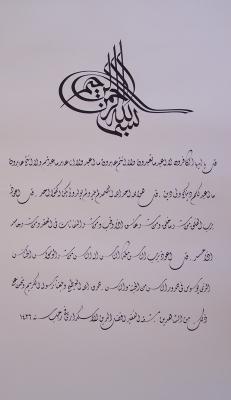 بسم الله الرحمن الرحيم
قل يا ايها الكافرون لا اعبد ما تعبدون ولا انتم عابدون ما اعبد ولا انا عابد ما عبدتم ولا انتم عابدون
ما اعبد لكم دينكم ولي دين . قل هو الله احد الله الصمد لم يلد ولم يولد ولم يكن له كفوا احد . قل اعوذ
برب الفلق من شر ما خلق ومن شر غاسق اذا وقب ومن شر النفاثات في العقد ومن شر حاسد
اذا حسد . قل اعوذ برب الناس ملك الناس اله الناس من شر الوسواس الخناس
الذي يوسوس في صدور الناس من الجنة والناس . صدق الله العظيم وصدق رسوله الكريم ونحن على
ذلك من الشاهدين